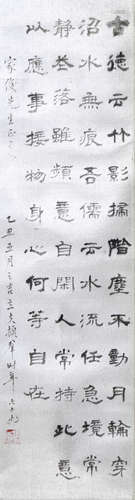 古德云竹影掃階塵不動月穿
沼水無痕吾儒云水流任急境常
靜花落雖頻意自閒人常持此意
以應事接物身心何等自在
先生正之
乙丑五月之吉